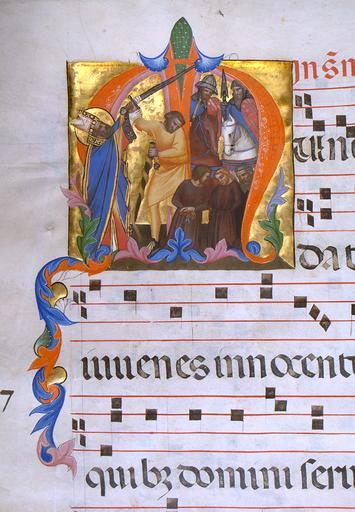 dat
iuuenes innocent
quibꝫ domini seru
7